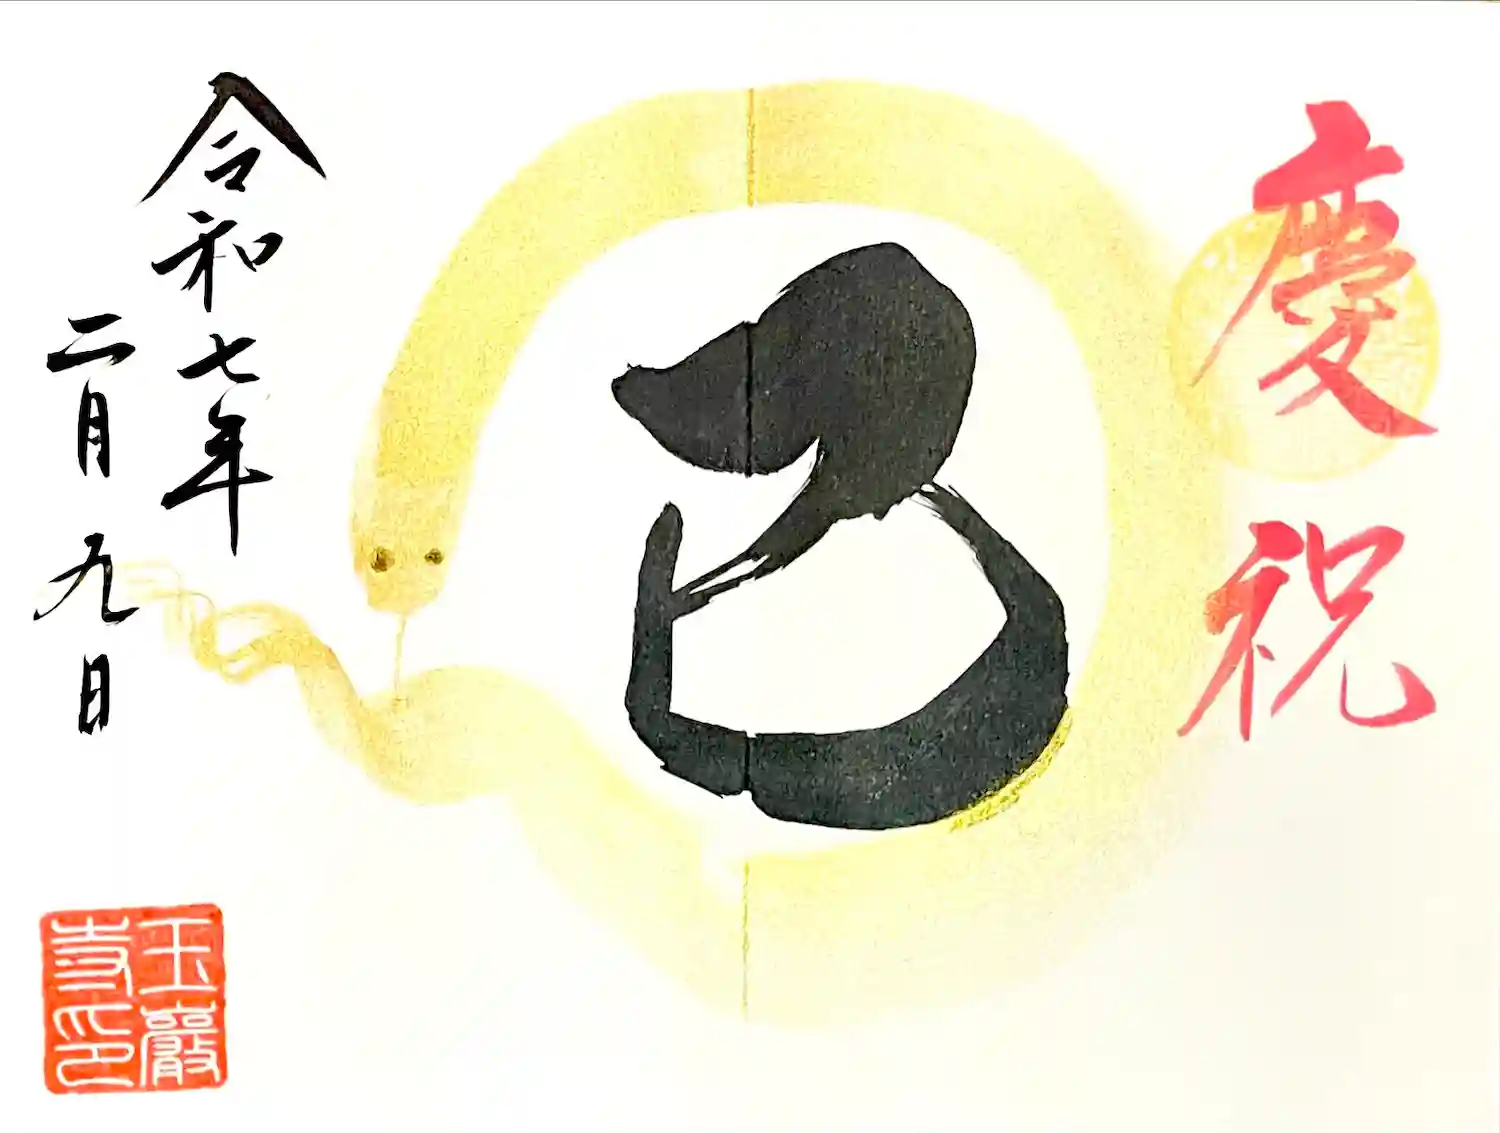 慶祝
巳
令和七年
二月九日
玉巌
寺印